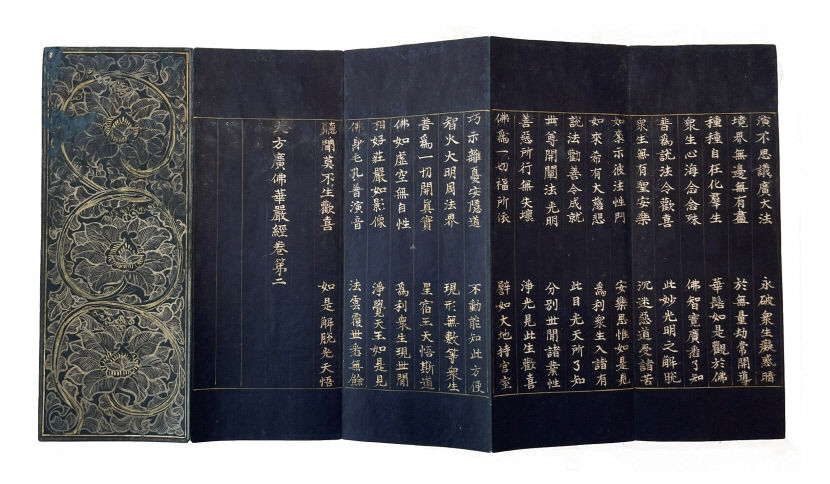 演不思議廣大法　永破衆生癡惑暗
境界無邊無有盡　於無量劫常開導
種種自在化羣生　華髻如是觀於佛
衆生心海念念殊　佛智寬廣悉了知
普爲說法令歡喜　此妙光明之解脫
衆生無有聖安樂　沉迷惡道受諸苦
如來示彼法性門　安樂思惟如是見
如來希有大慈悲　爲利衆生入諸有
說法勸善令成就　此目光天所了知
世尊開闡法光明　分別世間諸業性
善惡所行無失壞　淨光見此生歡喜
佛爲一切福所依　譬如大地持宮室
巧示離憂安隱道　不動能知此方便
智火大明周法界　現形無數等衆生
普爲一切開眞實　星宿王天悟斯道
佛如虛空無自性　爲利衆生現世間
相好莊嚴如影像　淨覺天王如是見
佛身毛孔普演音　法雲覆世悉無餘
聽聞莫不生歡喜　如是解脫光天悟
大方廣佛華嚴經卷第二